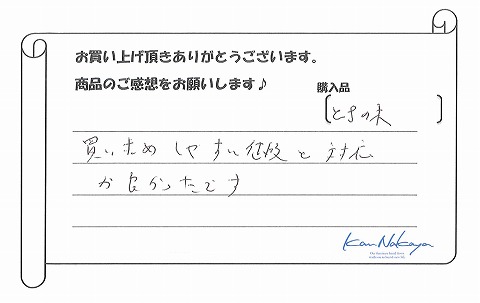 お買い上げ頂きありがとうございます。
商品のご感想をお願いします♪
購入品
[ときの木]
買いためしやすい値段と対応
が良かったです
Kan Nakaya